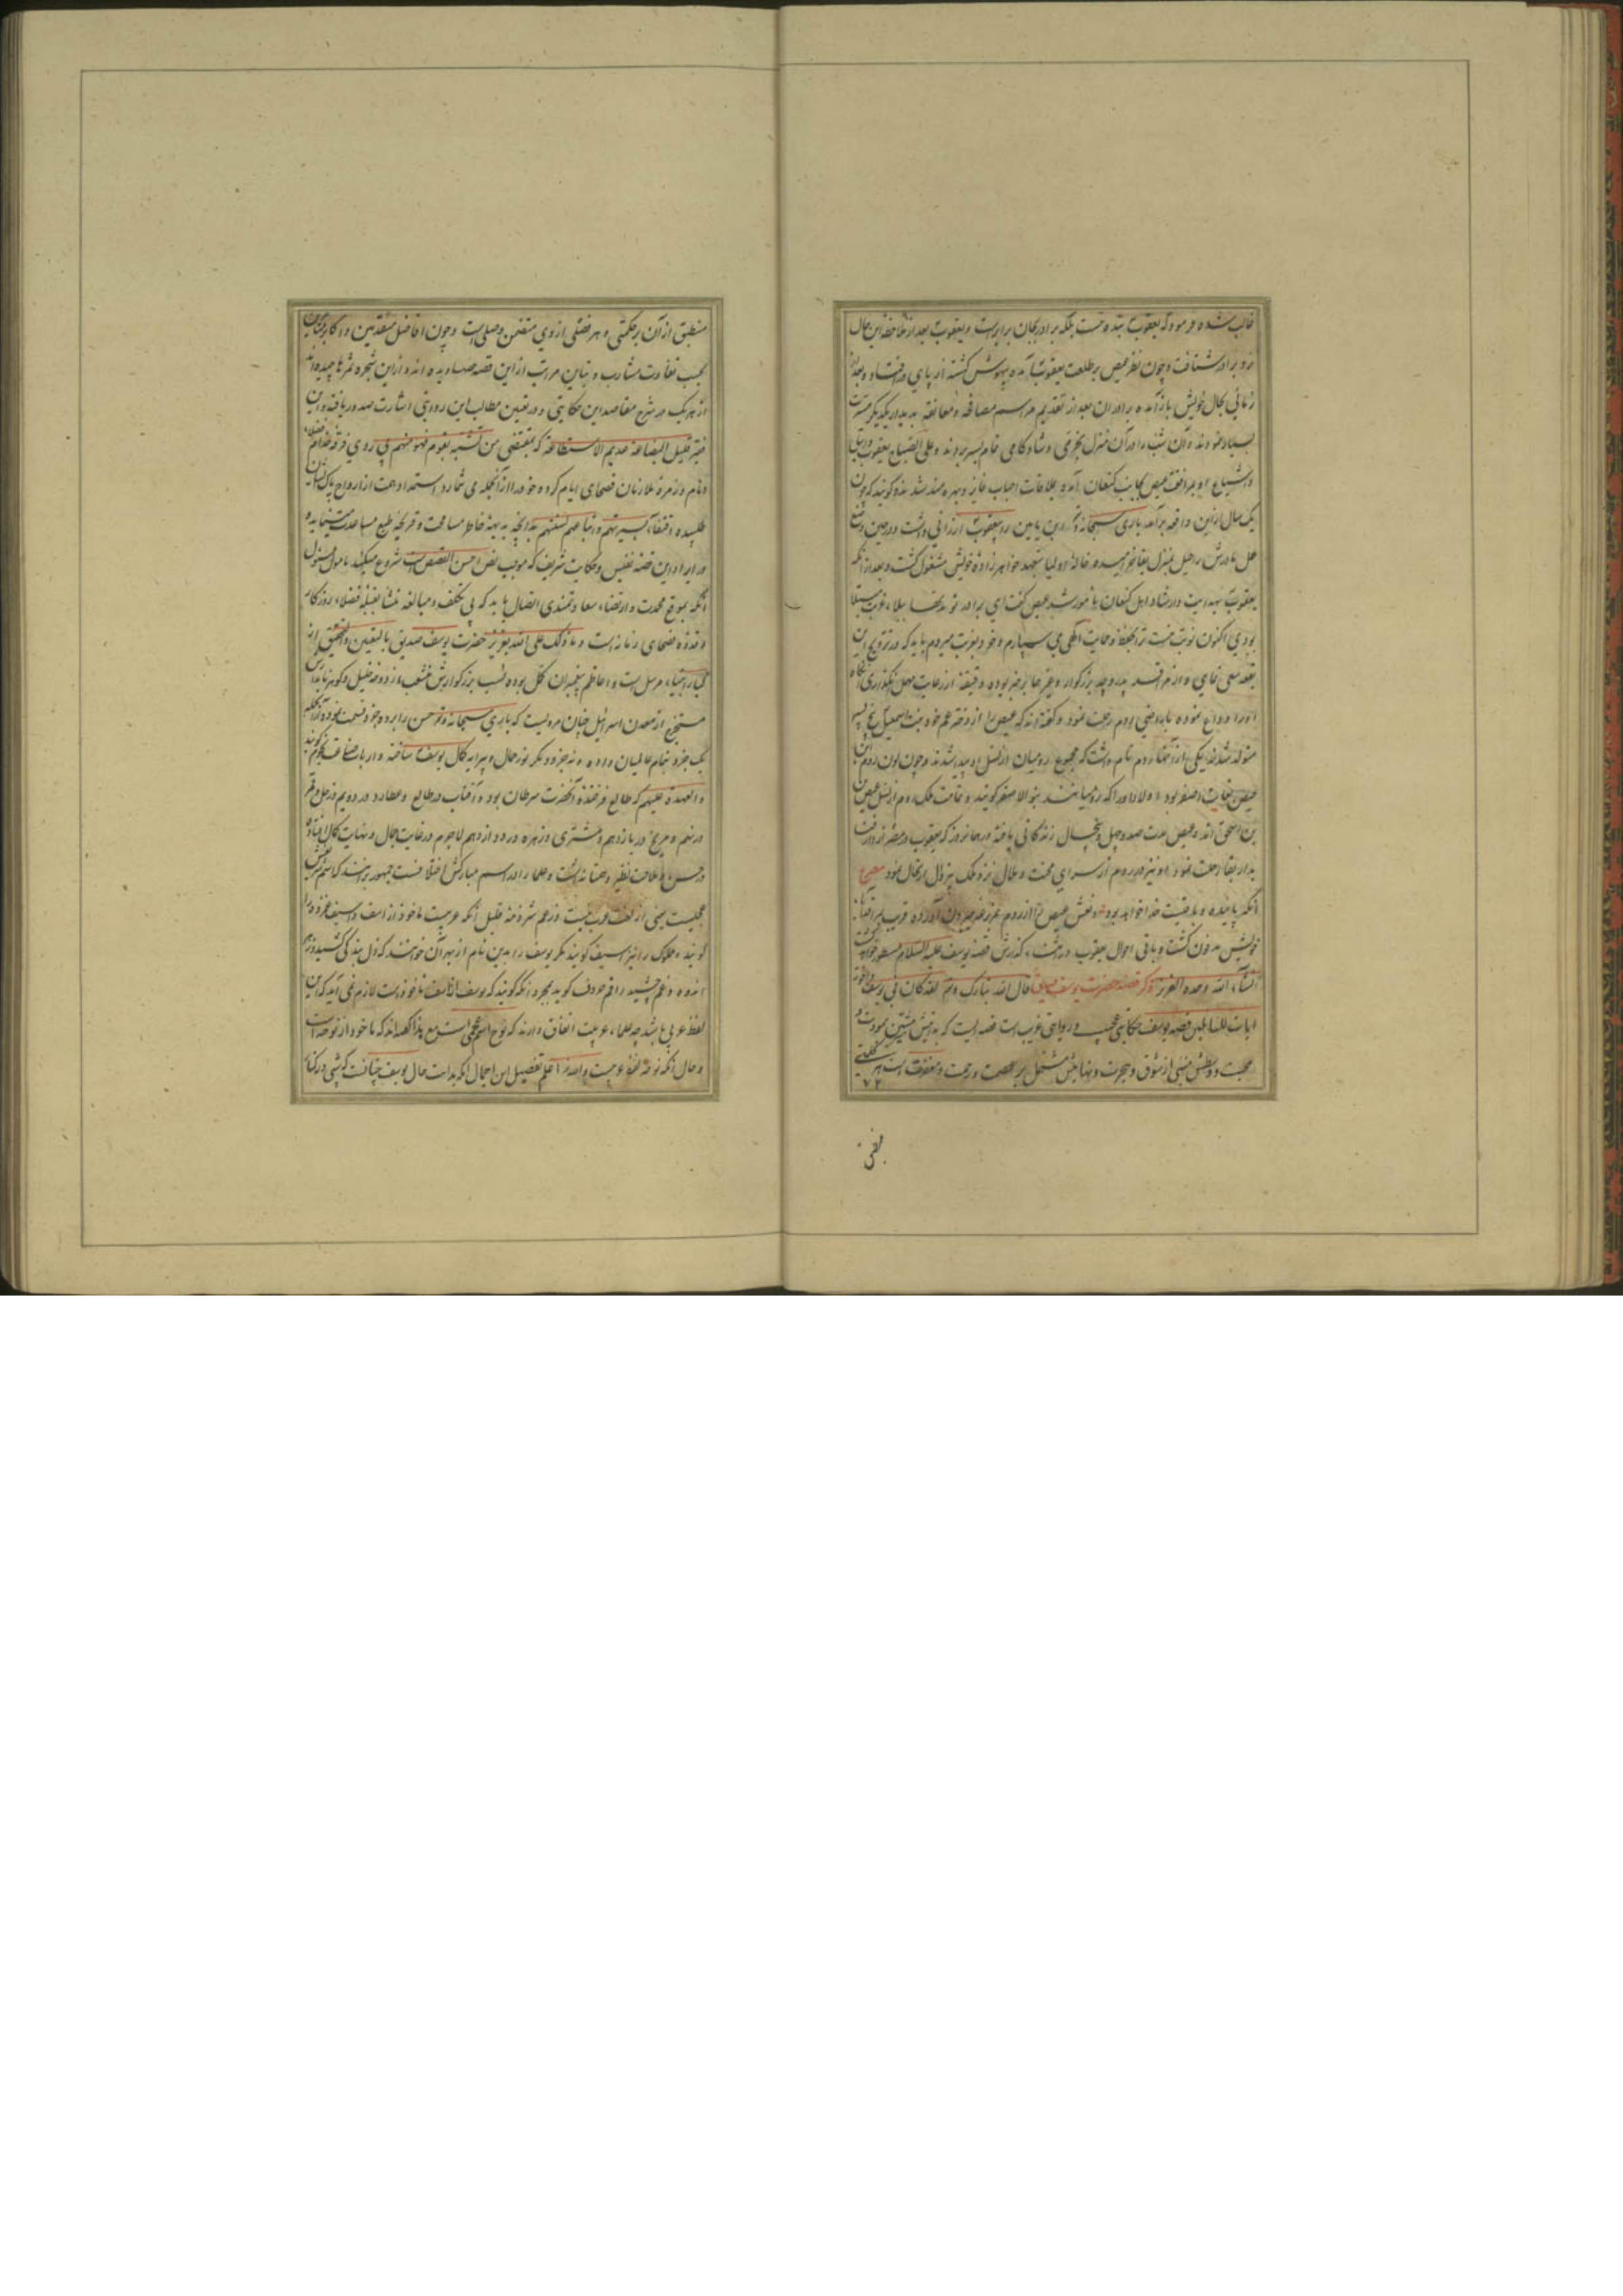 غالب شده فرمود که یعقوب بنده نیست بلکه برادر بجان برابرست و یعقوب بعد از ملاحظه این حال
نزد برادر شتافت و چون نظر عیص بر طلعت یعقوب آمده بیهوش گشته از پای در افتاد و بعد از
زمانی بحال خویش باز آمده برادران بعد از تقدیم مراسم مصافحه و معانقه بدیدار یکدیگر مسرت
بسیار نمودند و آن شب را در آن منزل بخرمی و شادکامی تمام بسر بردند و علی الصباح یعقوب
و اشیاع او بمرافقت عیص بجانب کنعان آمده بملاقات احباب فایز و بهره مند شدند گویند که چون
یک سال ازین واقعه برآمد باری سبحانه ابن یامین را بیعقوب ارزانی داشت و در حین وضع
حمل مادرش راحیل بمنزل بقا خرامیده خاله او لیا بتعهد خواهرزاده خویش مشغول گشت و بعد از آنکه
یعقوب بهدایت و ارشاد اهل کنعان مامور شد عیص گفت ای برادر تو مدتها ببلاء غربت مبتلا
بودی اکنون نوبت منست ترا بحفظ و حمایت الهی می سپارم و خود بغربت میروم باید که در ترویج این
بقعه سعی نمایی و از مرافقت پدر و جد بزرگوار
او را وداع نموده باراضی روم رحلت نمود و گفته اند که عیص را از دختر عم خود بنت اسمعیل پنج پسر
متولد شدند یکی از آنها روم نام داشت که مجموع رومیان از نسل او پیدا شدند و چون لون روم بن
عیص بغایت اصفر بود اولاد او را که رومیانند بنو الاصفر گویند و تمامت ملوک روم از نسل عیص
بن اسحق اند و عیص مدت صد و چهل و پنج سال زندگانی یافته در همان روز که یعقوب در مصر از دار فنا
بدار بقا رحلت نمود او نیز در روم از سرای محنت و ملال نزد ملک یزال ارتحال نمود مصرع
آنکه پاینده و باقیست خدا خواهد بود و نعش عیص را از روم بمزرعه حبرون آورده قریب بمرقد
خویش مدفون گشت و باقی احوال یعقوب در گذارش قصه یوسف علیه السلام مسطور خواهد
انشاء الله وحده العزیز ذکر قصه حضرت یوسف صدیق قال الله تبارک و تعالی لقد کان فی یوسف و اخوته
ایات للسایلین قصه یوسف حکایتی عجیب و روایتی غریب است قصه ایست که بدایتش مودت و
محبت و وسطش مبنی از شوق و هجرت و نهایتش مشتمل بر عصمت و رحمت و مغفرت است
۷۲
منطبق از آن بر حکمتی و هر فصلی از وی متضمن وصلی است و چون افاضل متقدمین و اکابر متاخرین
بحسب تفاوت مشارب و تباین مراتب از این قصه
از هر یک در شرح مقاصد این حکایتی و در تعیین مطالب این روایتی اشارت صدور یافته و این
فقیر قلیل البضاعه عدیم الاستطاعه که بمقتضی من تشبه بقوم فهو منهم پی روی فرقه
و نام در زمره ملازمان فصحای ایام کرده خود را از آنجمله می شمارد استمداد همت از ارواح پاک ایشان
طلبیده اقتفاء بسیرتهم و اتباعهم لسنتهم بدانچه بدیهه خاطر مسامحت و قریحه طبع مساعدت مینماید
در ایراد این قصه نفیس و حکایت شریف که بموجب نص احسن القصص است شروع میکند مامول
آنکه بموقع محمدت و ارتضاء سعادتمندی اتصال یابد که بی تکلف و مبالغه فضلاء روزگار
و قدوه فصحای زمانه است و ما ذلک علی الله بعزیز حضرت یوسف صدیق بالیقین و التحقیق از
کبار انبیاء مرسل است و اعاظم پیغمبران مکمل بوده نسب بزرگوارش منشعب از دوحه خلیل و گوهر
مستخرج از معدن اسرائیل چنان مرویست که باری سبحانه و تع حسن را بر ده جزو قسمت نموده
یک جزو بتمام عالمیان داده و نه جزو دیگر نور جمال و پیرایه کمال یوسف ساخته و ارباب نجوم گویند
و العهده علیهم که طالع فرخنده آنحضرت سرطان بود و آفتاب در طالع و عطارد در دویم و زحل و قمر
در نهم و مریخ در یازدهم و مشتری و زهره در دوازدهم لاجرم در غایت جمال و نهایت کمال افتاده
در حسن و ملاحت نظیر و همتا نداشت و علما را در اسم مبارکش اختلافست جمهور برانند که اسم شریفش
عجمیست یعنی از لغت عرب نیست و زعم شرذمه قلیل آنکه عربیست ماخوذ از اسف و اسیف محزون را
گویند و مملوک را نیز اسیف گویند مگر یوسف را بدین نام از بهر آن خواندند که ذل بندگی کشید و زهر
اندوه و غم چشید راقم حروف گوید بمجرد آنکه گویند که یوسف از اسف ماخوذ است لازم نمی آید که این
لفظ عربی باشد چه علماء عربیت اتفاق دارند که نوح اسم عجمی است مع هذا گفته اند که ماخوذ از نوحه است
و حال آنکه نوحه لفظ عربیست و الله اعلم تفصیل این اجمال آنکه بدایت حال یوسف چنانست که شبی در کنار